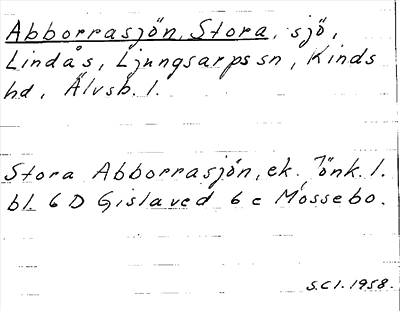 Abborrasjön, Stora, sjö,
Lindås, Ljungsarps sn, Kinds
hd, Älvsb. l.
Stora Abborrasjön, ek. Jönk. l.
bl. 6 D Gislaved 6 c Mossebo.
S.C.I. 1958.